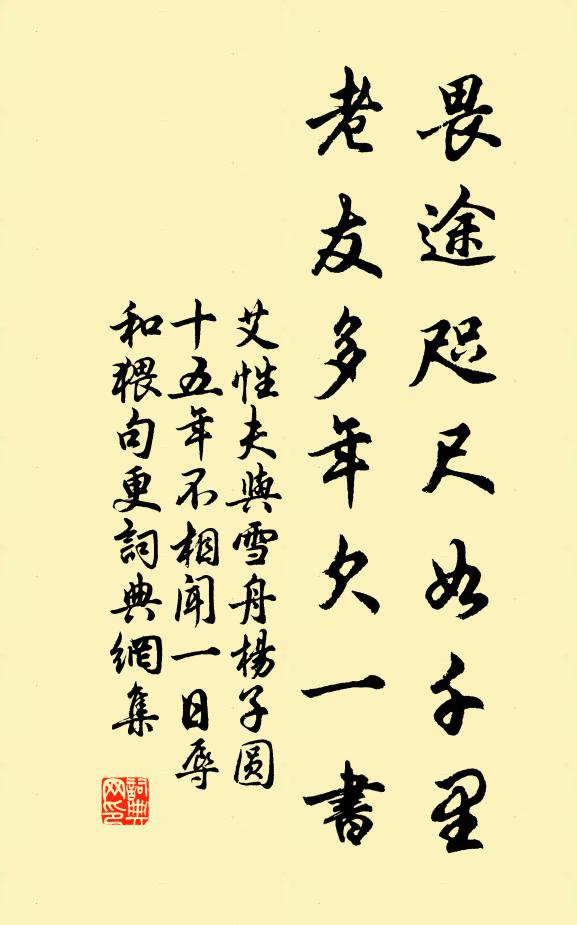 畏途咫尺如千里
老友多年欠一書
艾性夫與雪舟楊子圓
十五年不相聞一日辱
和猥句更詞典網集
詞典網印